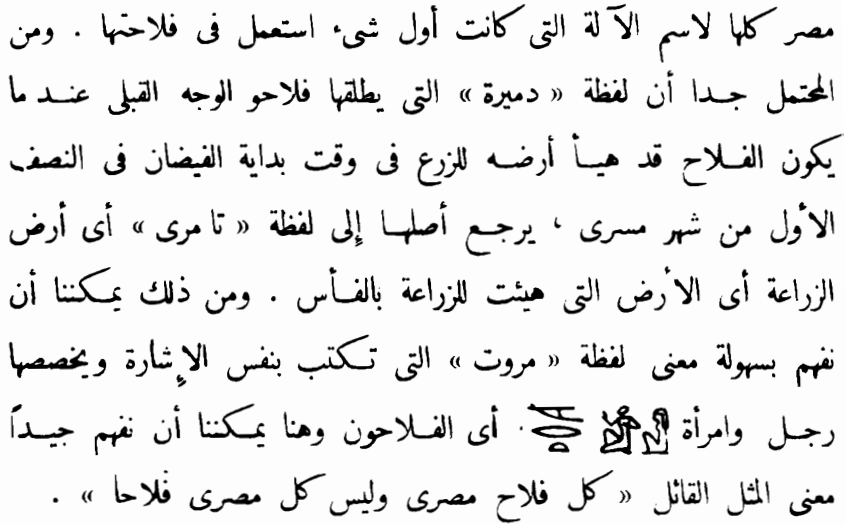 مصر كلها لاسم الآلة التى كانت أول شىء استعمل فى فلاحتها . ومن
المحتمل جدا أن لفظة « دميرة » التى يطلقها فلاحو الوجه القبلى عند ما
يكون الفلاح قد هيأ أرضه للزرع فى وقت بداية الفيضان فى النصف
الأول من شهر مسرى ، يرجع أصلها إلى لفظة « تا مرى » أى أرض
الزراعة أى الأرض التى هيئت للزراعة بالفأس . ومن ذلك يمكننا أن
نفهم بسهولة معنى لفظة « مروت » التى تكتب بنفس الإشارة ويخصصها
رجل وامرأة . أى الفلاحون وهنا يمكننا أن نفهم جيداً
معنى المثل القائل « كل فلاح مصرى وليس كل مصرى فلاحا » .